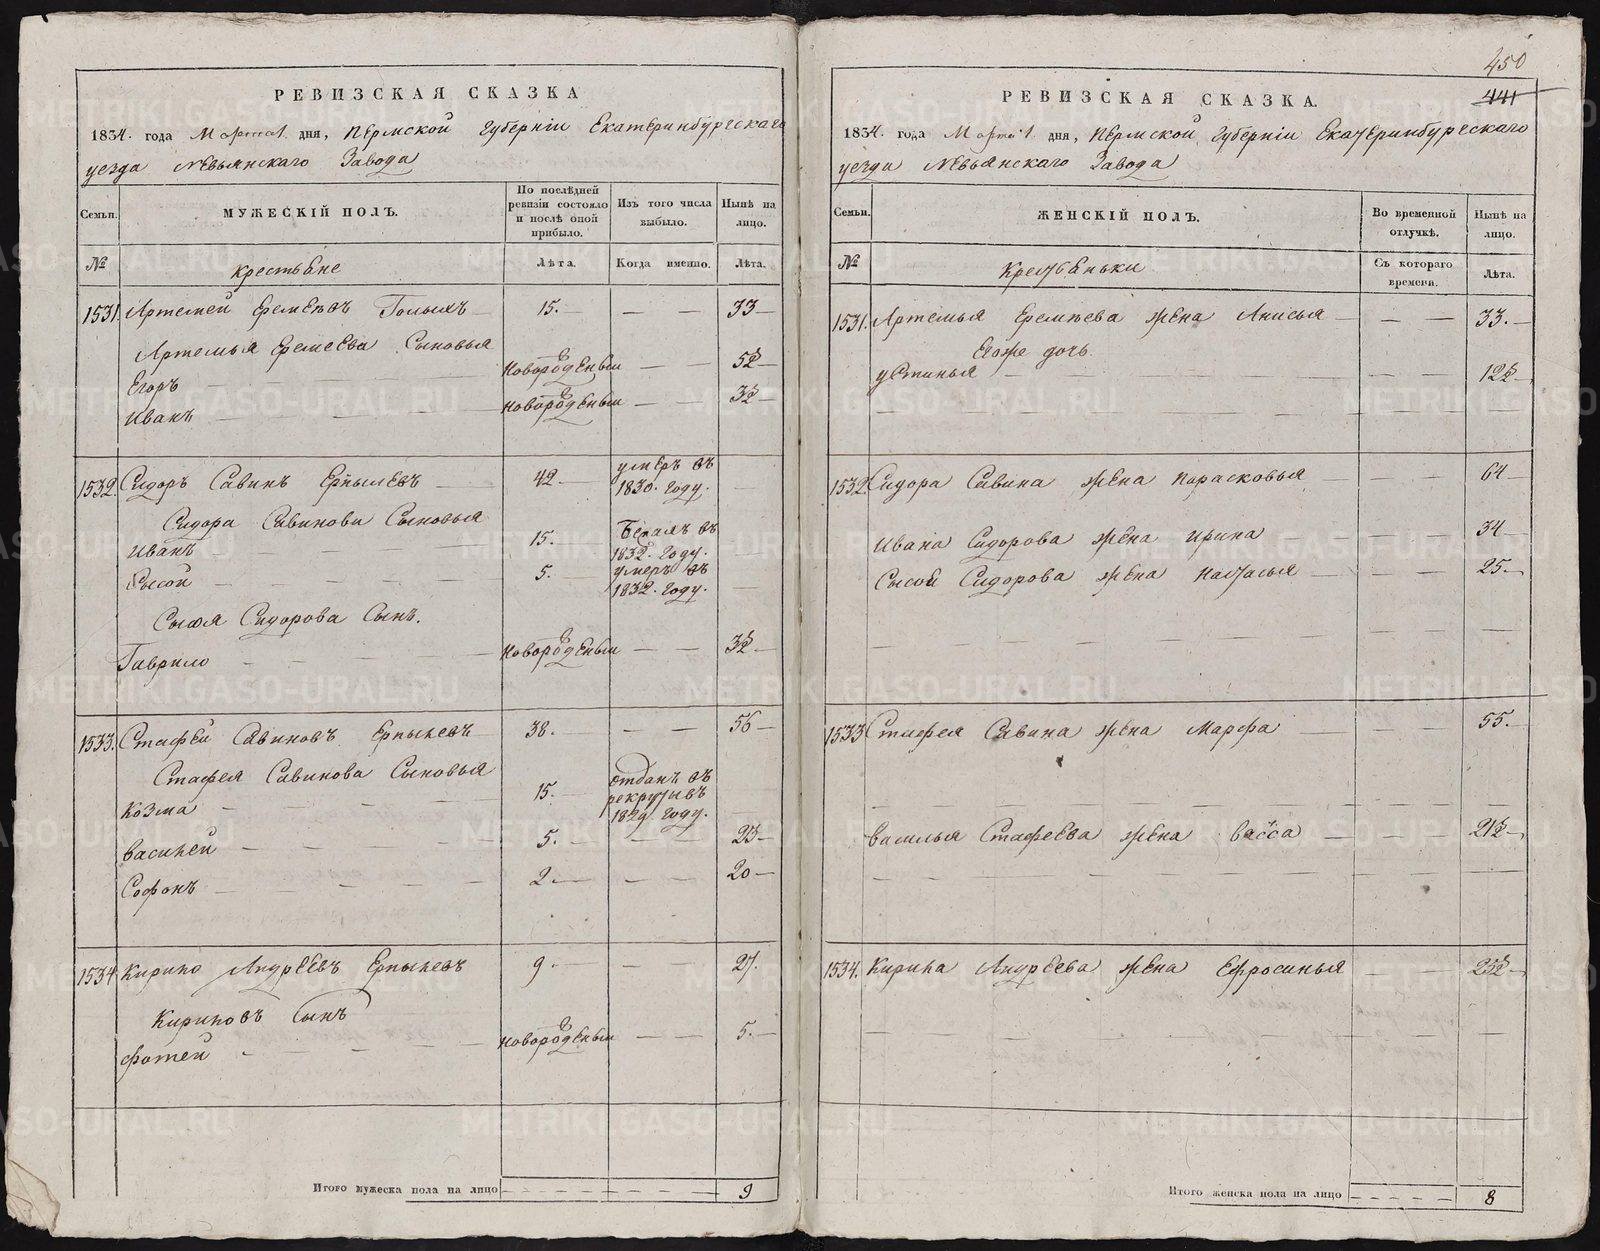 РЕВИЗСКАЯ СКАЗКА
1834. года Марта дня, Пермской Губернiи Екатеринбургскаго
уезда Невьянскаго Завода
Семьи.
МУЖЕСКIЙ ПОЛЪ.
По послѣдней ревизiи состояло и послѣ оной прибыло.
Изъ того числа выбыло.
Нынѣ на лицо.
№
крестьяне
Лѣта.
Когда именно.
Лѣта.
1531. Артемей Еремѣевъ Голыхъ 15. 33
Артемья Еремеева Сыновья
Егоръ Новорожденный 5½
Иванъ Новорожденный 3½
1532. Сидоръ Савинъ 42 умеръ въ 1830. году.
Сидора Савинова Сыновья
Иванъ 15. Бежалъ въ 1832. году.
Сысой 5. умеръ въ 1832. году.
Сысоя Сидорова Сынъ.
Гаврило Новорожденный 3½
1533. Стафей Савиновъ 38. 56
Стафея Савинова Сыновья
Козма 15. отданъ въ рекруты въ 1829 году.
Василей 5. 23
Софонъ 2. 20
1534 Кирило Андреевъ 9. 27.
Кириловъ Сынъ
Фотей Новорожденный 5.
Итого мужеска пола на лицо 9
450
441
РЕВИЗСКАЯ СКАЗКА.
1834. года Марта дня, Пермской Губернiи Екатеринбургскаго
уезда Невьянскаго Завода
Семьи.
ЖЕНСКIЙ ПОЛЪ.
Во временной отлучкѣ.
Нынѣ на лицо.
№
Крестьянки
Съ котораго времени.
Лѣта.
1531. Артемья Еремѣева жена Анисья 33.
Егоже дочь
Устинья 12½
1532. Сидора Савина жена Парасковья 64
Ивана Сидорова жена Ирина 34
Сысоя Сидорова жена Настасья 25.
1533 Стафея Савина жена Марфа 55.
Василья Стафеева жена Васса 21½
1534. Кирила Андреева жена Ефросинья 25½
Итого женска пола на лицо 8
METRIKI.GASO-URAL.RU